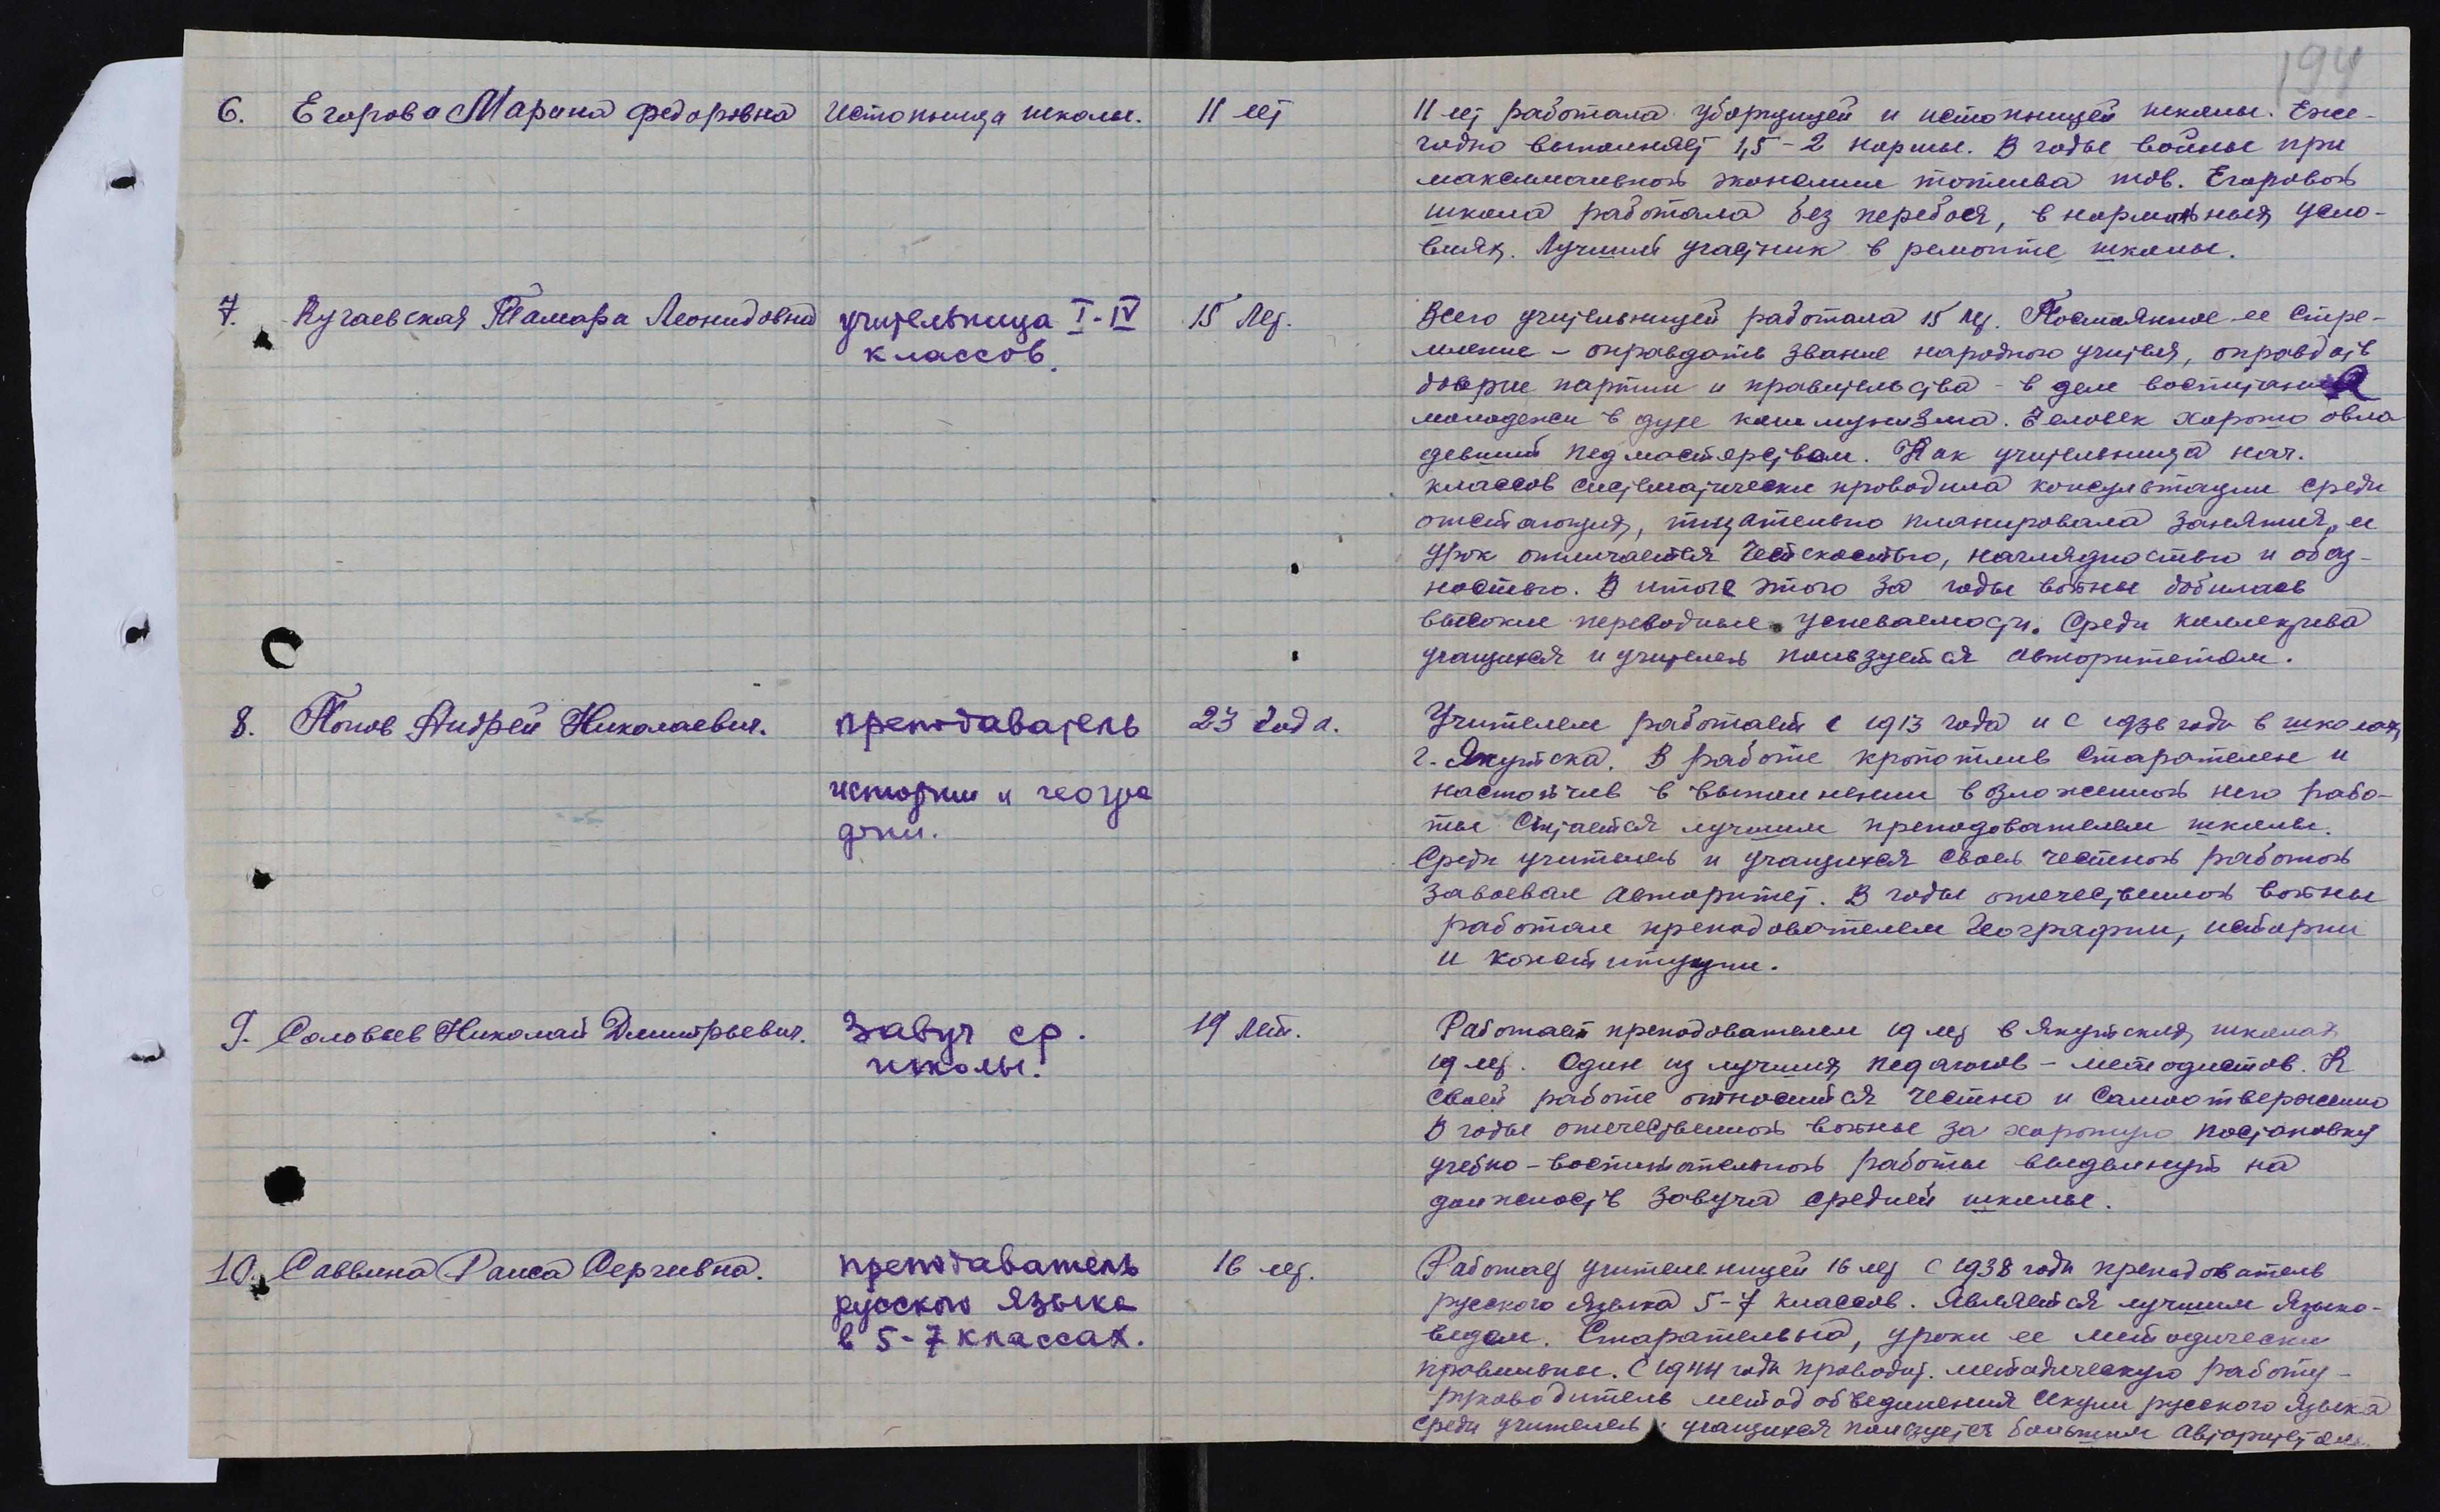 194
6. Егорова Марина Федоровна
Истопница школы.
11 лет
11 лет работала уборщицей и истопницей школы. Еже-
годно выполняет 1,5-2 нормы. В годы войны при
максимальной экономии топлива тов. Егоровой
школа работала без перебоя, в нормальных усло-
виях. Лучший участник в ремонте школы.
7. Кугаевская Тамара Леонидовна
учительница I-IV
классов.
15 лет.
Всего учительницей работала 15 лет. Постоянное ее стре-
мление - оправдать звание народного учителя, оправдать
доверие партии и правительства - в деле воспитания
молодежи в духе коммунизма. Человек хорошо овла
девший педмастерством. Как учительница нач.
классов систематически проводила консультации среди
отстающих, тщательно планировала занятия, ее
урок отличается четкостью, наглядностью и
В итоге этого за годы войны добилась
высокие переводные успеваемости. Среди коллектива
учащихся и учителей пользуется авторитетом.
8. Попов Андрей Николаевич.
преподаватель
истории и геогра
фии.
23 года.
Учителем работает с 1913 года и с 1936 года в школах
г. Якутска. В работе кропотлив старателен и
настойчив в выполнении возложенной него рабо-
ты Считается лучшим преподователем школы.
Среди учителей и учащихся своей честной работой
завоевал авторитет. В годы отечественной войны
работал преподователем географии, истории
и конституции.
9. Соловьев Николай Дмитрьевич.
Завуч ср.
школы.
19 лет.
Работает преподователем 19 лет в Якутских школах
19 лет. Один из лучших педагогов - методистов. К
своей работе относится честно и самоотверженно
В годы отечественной войны за хорошую постановку
учебно-воспитательной работы выдвинут на
должность завуча средней школы.
10. Саввина Раиса Сергеевна.
преподаватель
русского языка
в 5-7 классах.
16 лет.
Работает учительницей 16 лет с 1938 года преподователь
русского языка 5-7 классов. Является лучшим языко-
ведом. Старательна, уроки ее методически
правильны. С 1944 года проводит. методическую работу -
руководитель метод объединения секции русского языка
Среди учителей учащихся пользуется большим авторитетом.